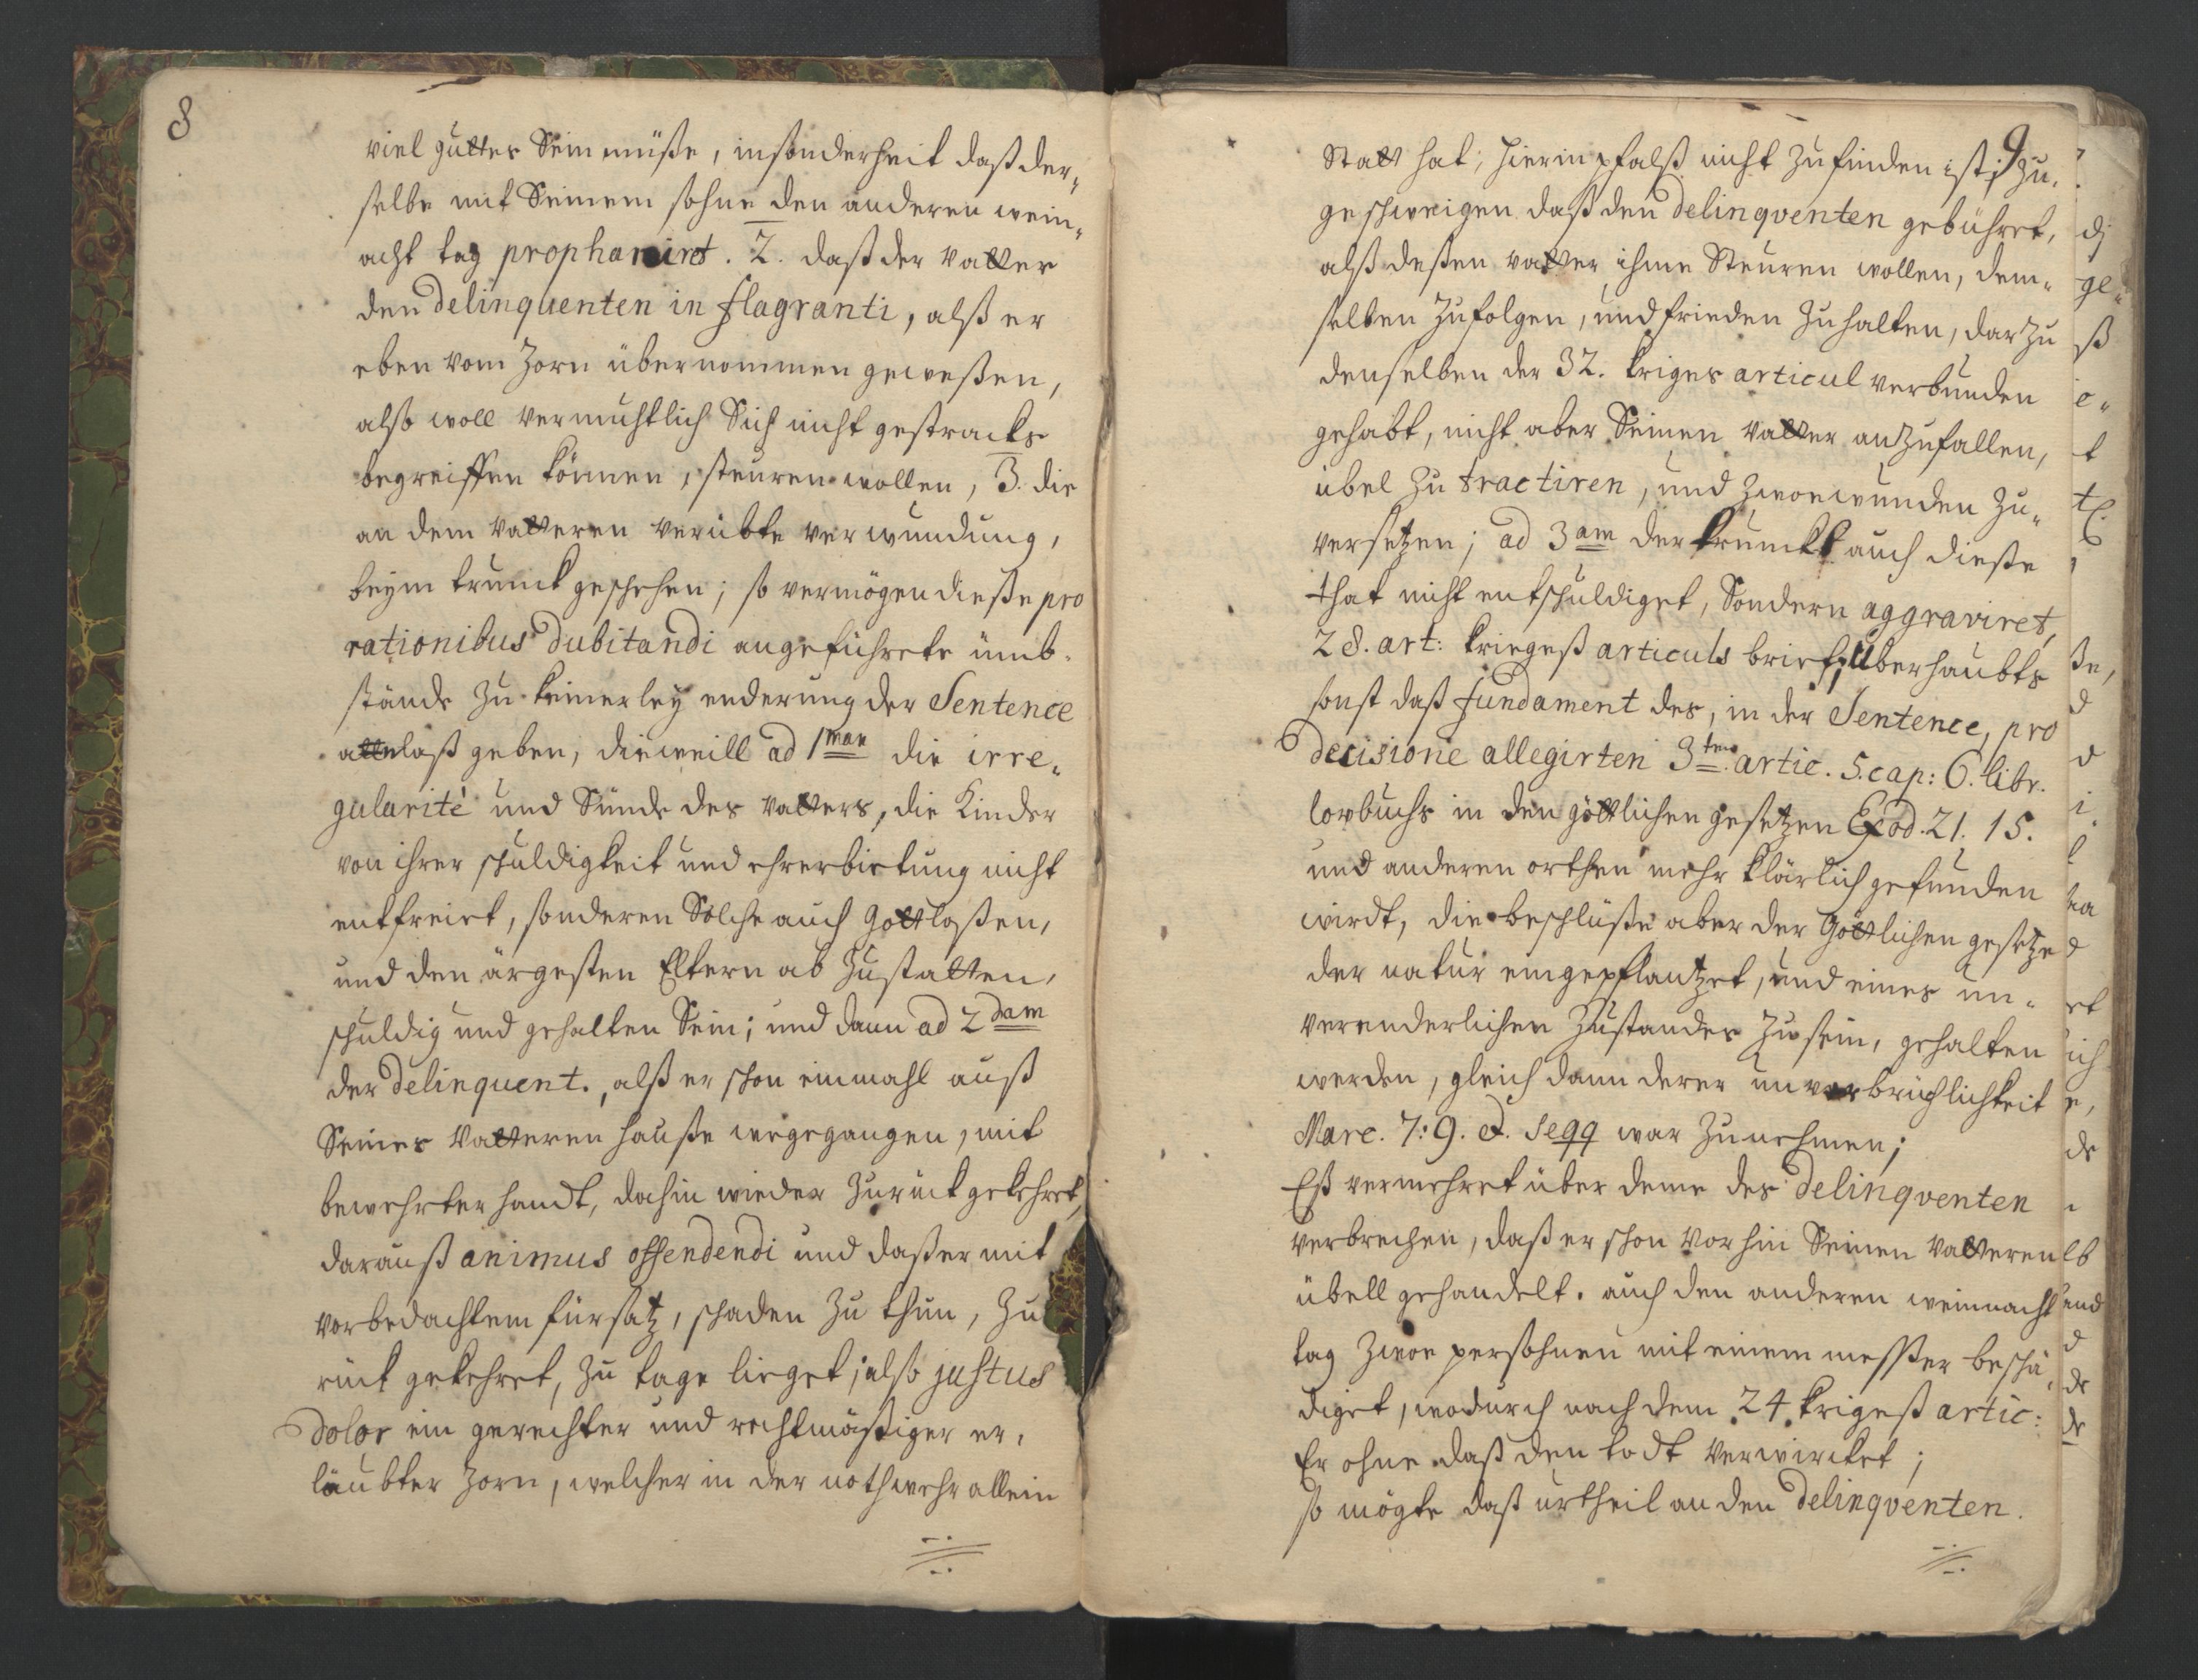 8
viel guttes Sein müße, insonderheit daß der„
selbe mit Seinem sohne den anderen wein„
acht tag prophaniret. 2. daß der Vatter
den delinquenten in flagranti, alß er
eben vom Zorn übernommen geweßen,
also woll vermuhtlich Sich nicht gestracks
begreiffen können, steuren wollen, 3. die
an dem Vatteren verübte verwundung,
beym trunck geschehen; so vermögen dieße pro
rationibus dubitandi angeführete umb„
stände zu keinerley enderung der Sentence
anlaß geben, dieweill ad 1mam die irre„
gularité und Sünde des Vatters, die Kinder
von ihrer schuldigkeit und ehrerbietung nicht
entfreiet, sonderen Solche auch Gottloßen,
und den ärgesten Eltern ab zustatten,
schuldig und gehalten Sein; und dann ad 2dam
der delinquent., alß er schon einmahl auß
Seines Vatteren hauße wegegangen, mit
bewehrter handt, dahin wieder zurück gekehret,
darauß animus offendendi und daß er mit
vorbedachtem fürsatz, schaden zu thun, zu
rück gekehret, zu tage lieget; also justus
dolor ein gerechter und rechtmäßiger er„
läubter Zorn, welcher in der nothwehr allein
9
Statt hat, hierin pfalß nicht zu finden ist; zu„
geschweigen daß den delinqventen gebühret,
alß deßen vatter ihme Steuren wollen, dem„
selben zufolgen, und frieden zuhalten, darzu
denselben der 32. kriges articul verbunden
gehabt, nicht aber Seinen Vatter anzufallen,
übel zu tractiren, und zwoe wunden zu„
versetzen; ad 3am der trunck auch dieße
that nicht entschuldiget, Sondern aggraviret,
28. art: krieges articuls brief; Überhaubts
sonst daß fundament des, in der Sentence, pro
decisione allegirten 3ten artic. 5. cap: 6. libr.
lovbuchs in den göttlichen gesetzen Exod. 21. 15.
und anderen orthen mehr klärlich gefunden
wirdt, die beschlüße aber der Göttlichen gesetze
der natur eingepflantzet, und eines un„
veranderlichen Zustandes zu sein, gehalten
werden, gleich dann derer unverbrüchlichkeit
Marc. 7: 9. et. seqq war zunehmen;
Eß vermehret über deme des delinqventen
verbrechen, daß er schon vorhin Seinen Vatteren
übell gehandelt. auch den anderen weinnacht
tag zwoe persohnen mit einem messer beschä„
diget, wodurch nach dem 24 krigeß artic:
Er ohne daß den todt Verwircket;
so mögte daß urtheil an den delinqventen.